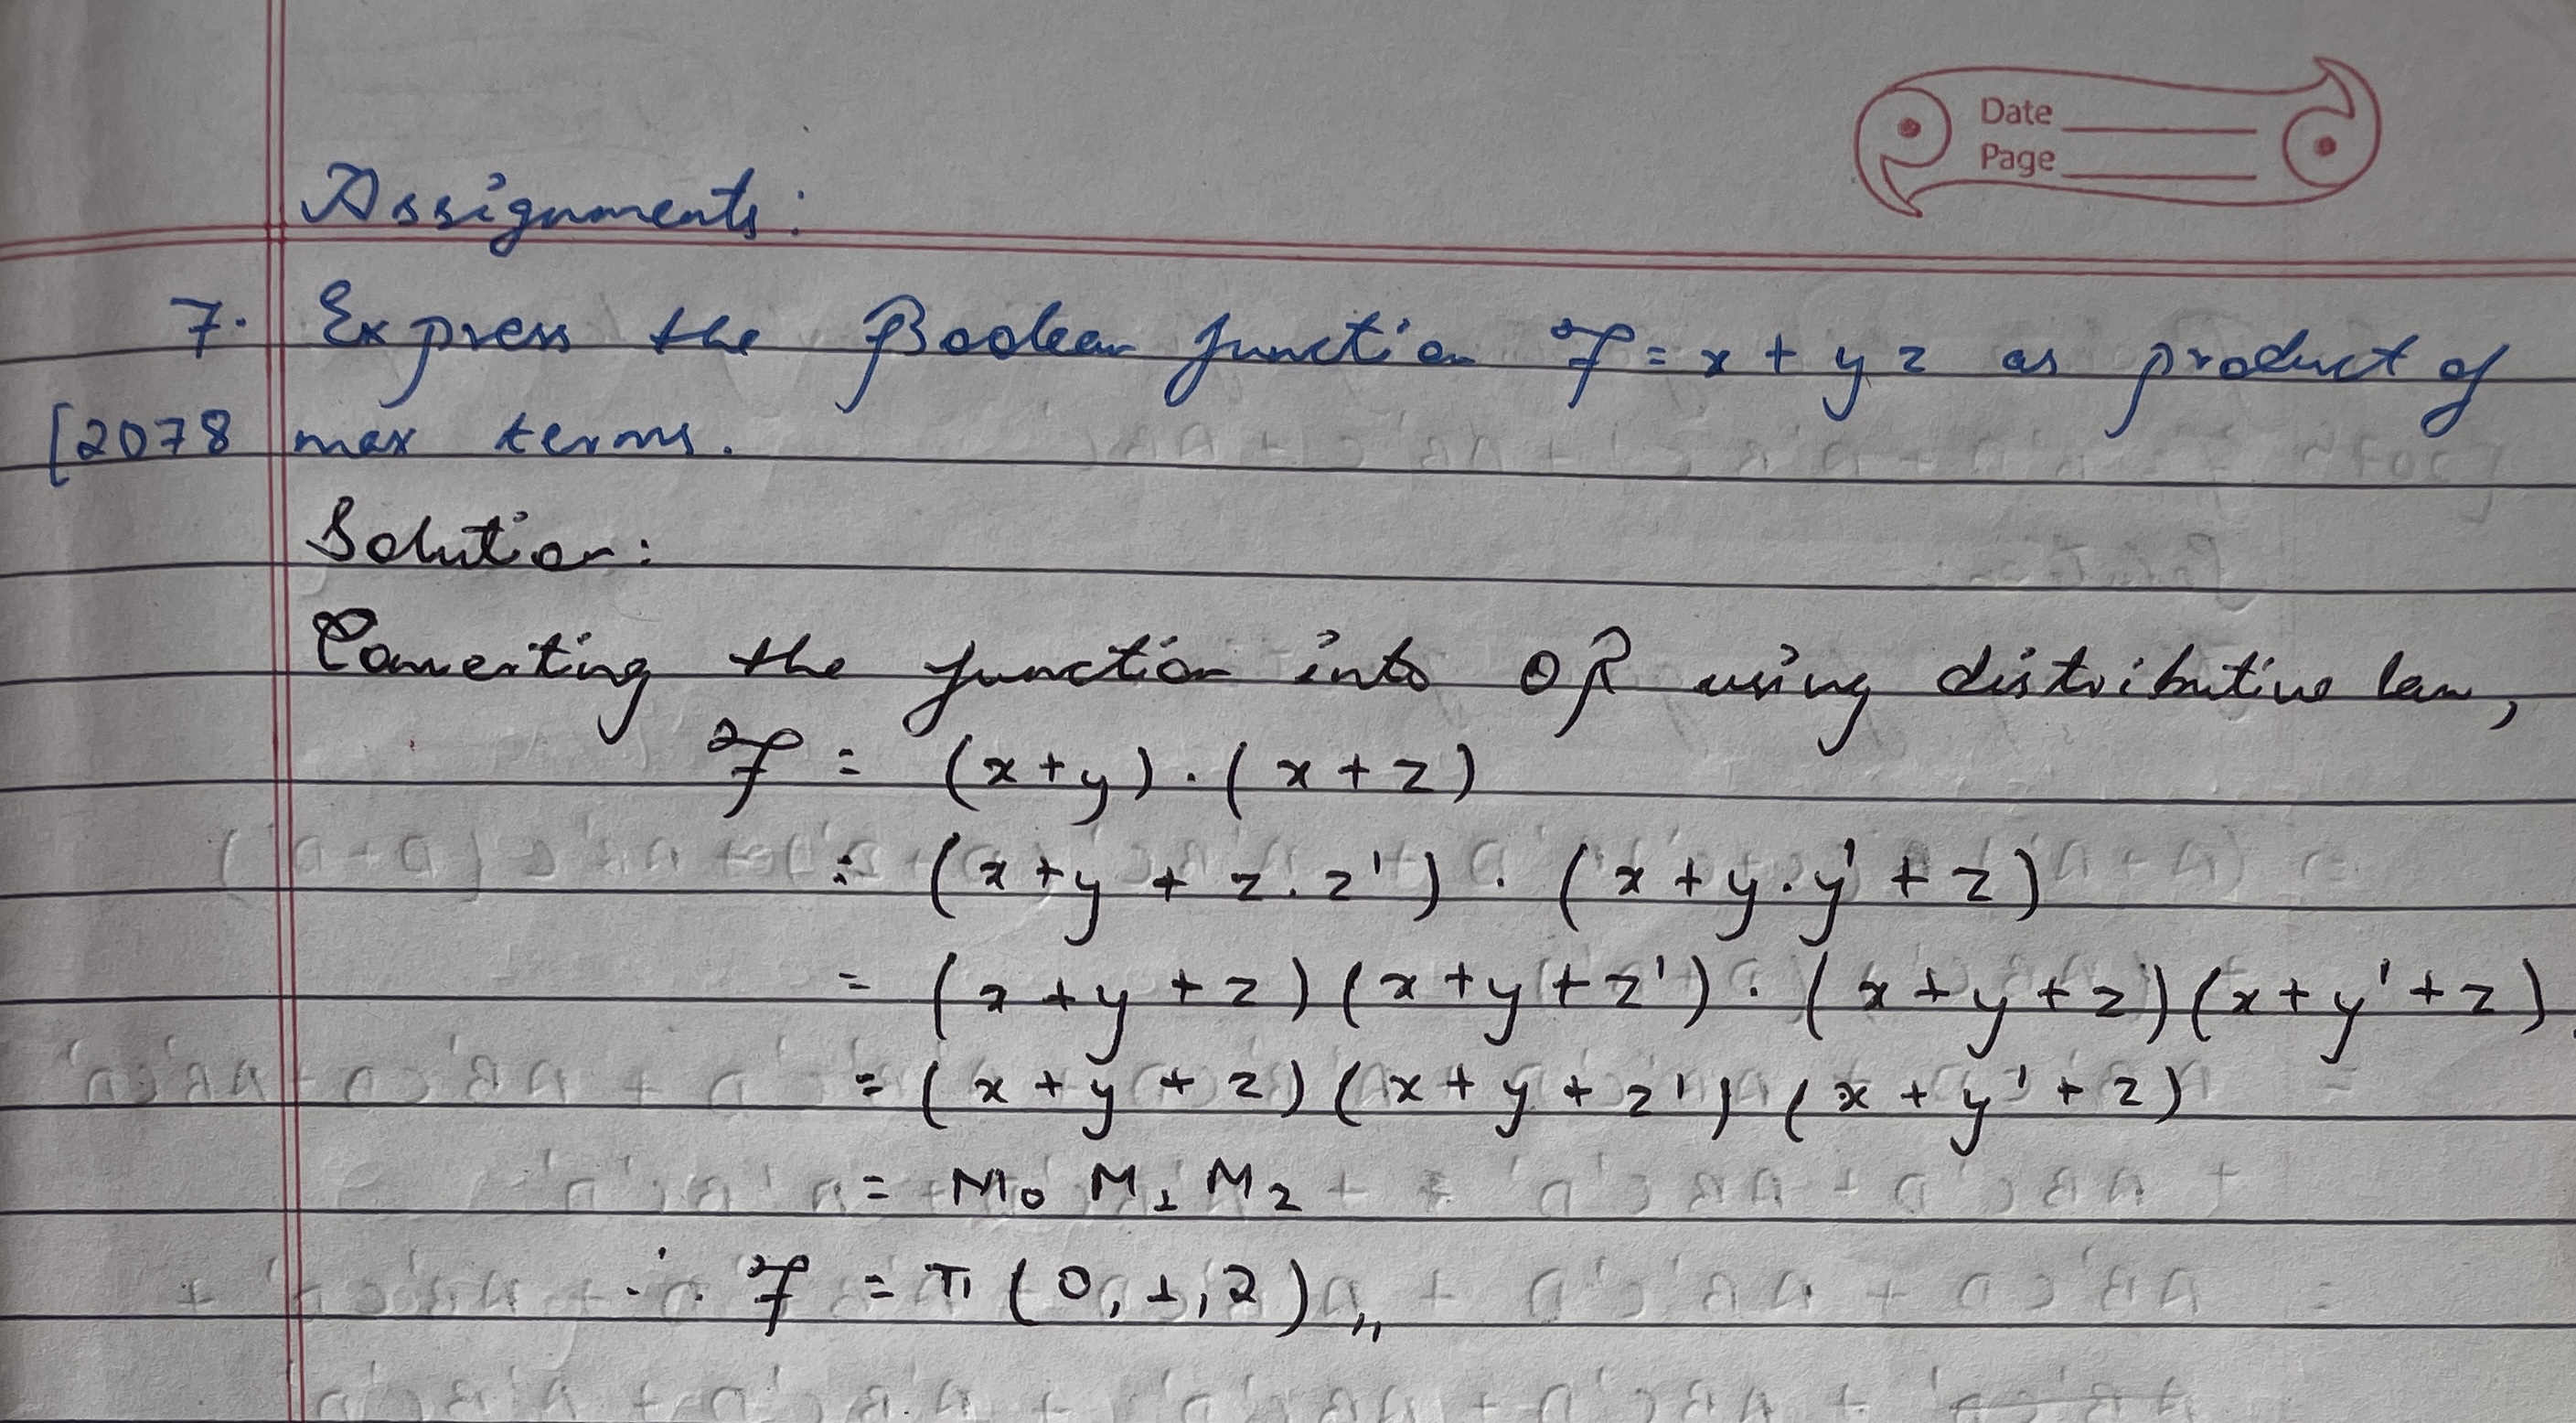 Date
Page
Assignments:
7. Express the Boolean function F = x + yz as product of
[2078 max terms.
Solution:
Converting the function into OR using distributive law,
F = (x+y).(x+z)
= (x+y+z.z').(x+y.y'+z)
= (x+y+z)(x+y+z').(x+y+z)(x+y'+z)
= (x+y+z)(x+y+z')(x+y'+z)
= M₀ M₁ M₂
∴ F = π(0,1,2),,